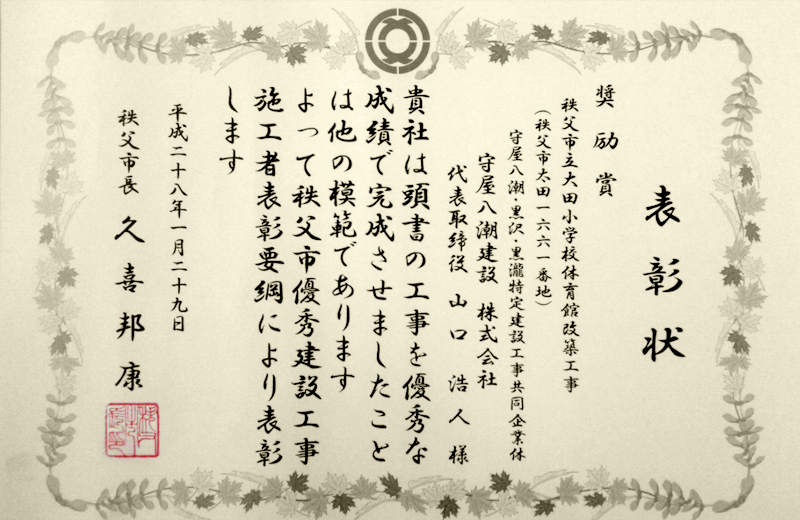 表彰状
奨励賞
秩父市立大田小学校体育館改築工事
（秩父市太田一六六一番地）
守屋八潮・黒沢・黒瀧特定建設工事共同企業体
守屋八潮建設 株式会社
代表取締役 山口 浩人 様
貴社は頭書の工事を優秀な
成績で完成させましたこと
は他の模範であります
よって秩父市優秀建設工事
施工者表彰要綱により表彰
します
平成二十八年一月二十九日
秩父市長 久喜邦康